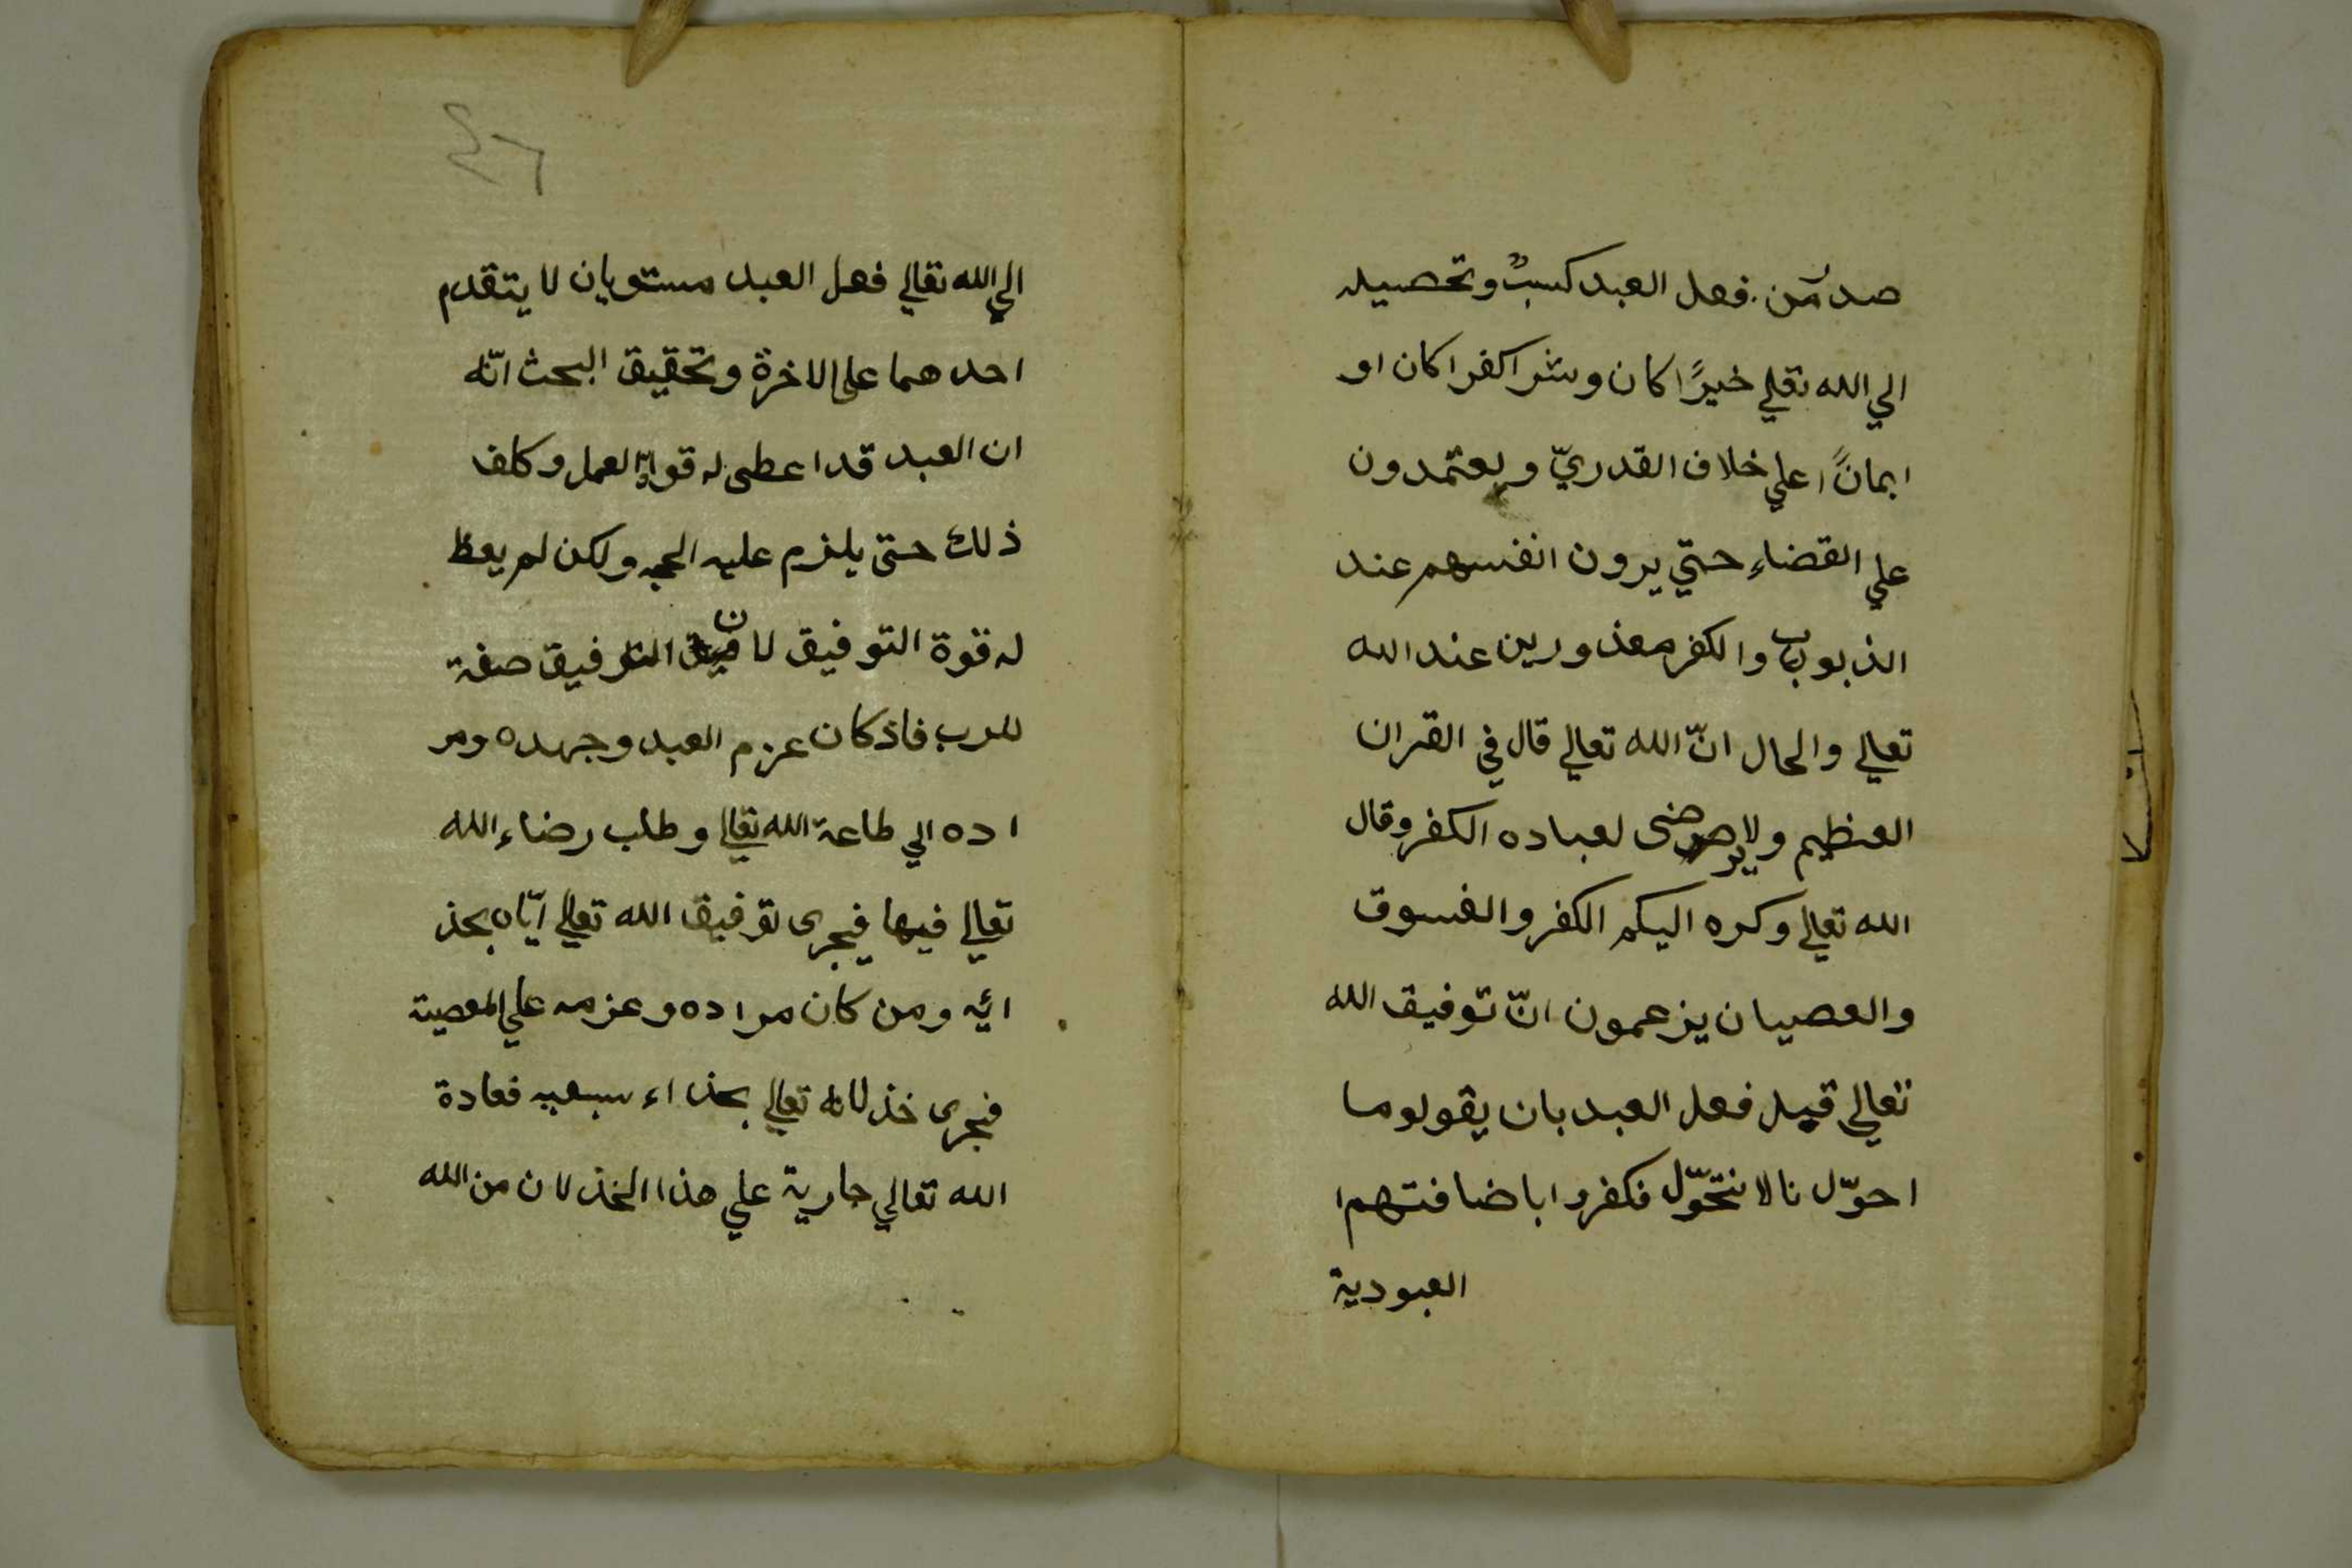 صدر من فعل العبد كسبٌ وتحصيله
الي الله تعلي خيرًا كان وشرا كفرا كان او
ايمانًا علي خلاف القدريّ ويعتمدون
علي القضاءِ حتي يرون انفسهم عند
الذبوب والكفر معذورين عند الله
تعالي والحال انّ الله تعالي قال في القران
العظيم ولا يرضى لعباده الكفر وقال
الله تعالي وكره اليكم الكفر والفسوق
والعصيان يزعمون انّ توفيق الله
تعالي قبل فعل العبد بان يقولوما
احوّل نا لا نتحوّل فكفروا باضافتهم
العبودية
٤٦
الي الله تعالي فعل العبد مستويان لا يتقدم
احدهما علي الاخرة وتحقيق البحث انّه
ان العبد قد اعطى له قوة العمل وكلف
ذلك حتى يلزم عليه الحجه ولكن لم يعط
له قوة التوفيق لان التوفيق صفة
للرب فاذ كان عزم العبد وجهده ومر
اده الي طاعة الله تعالي وطلب رضاء الله
تعالي فيها فيجرى توفيق الله تعالي ايّاه بحذ
ائه ومن كان مراده وعزمه علي المعصية
فيجرى خذلانه تعالي بحذاء سعيه فعادة
الله تعالي جارية علي هذا الخذلان من الله